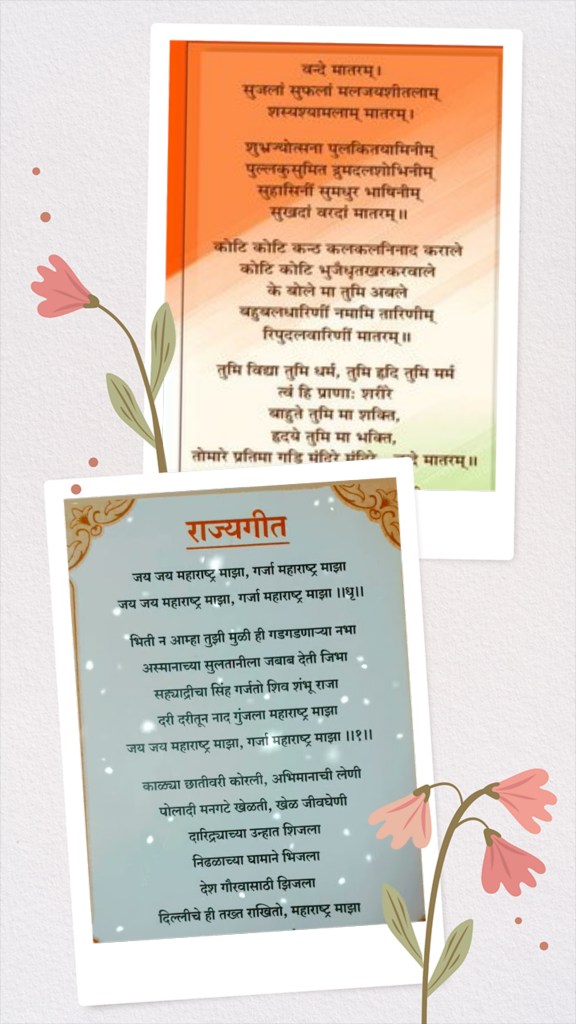 वन्दे मातरम्।
सुजलां सुफलां मलजयशीतलाम्
शस्यश्यामलाम् मातरम्।
शुभ्रज्योत्सना पुलकितयामिनीम्
पुल्लकुसुमित द्रुमदलशोभिनीम्
सुहासिनीं सुमधुर भाषिनीम्
सुखदां वरदां मातरम्॥
कोटि कोटि कन्ठ कलकलनिनाद कराले
कोटि कोटि भुजैधृतखरकरवाले
के बोले मा तुमि अबले
बहुबलधारिणीं नमामि तारिणीम्
रिपुदलवारिणीं मातरम्॥
तुमि विद्या तुमि धर्म, तुमि हृदि तुमि मर्म
त्वं हि प्राणाः शरीरे
बाहुते तुमि मा शक्ति,
हृदये तुमि मा भक्ति,
तोमारे प्रतिमा गडि मंदिरे मंदिरे मातरम्॥
राज्यगीत
जय जय महाराष्ट्र माझा, गर्जा महाराष्ट्र माझा
जय जय महाराष्ट्र माझा, गर्जा महाराष्ट्र माझा ।।धृ।।
भिती न आम्हा तुझी मुळी ही गडगडणाऱ्या नभा
अस्मानाच्या सुलतानीला जबाब देती जिभा
सह्याद्रीचा सिंह गर्जतो शिव शंभू राजा
दरी दरीतून नाद गुंजला महाराष्ट्र माझा
जय जय महाराष्ट्र माझा, गर्जा महाराष्ट्र माझा ।।१।।
काळ्या छातीवरी कोरली, अभिमानाची लेणी
पोलादी मनगटे खेळती, खेळ जीवघेणी
दारिद्र्याच्या उन्हात शिजला
निढळाच्या घामाने भिजला
देश गौरवासाठी झिजला
दिल्लीचे ही तख्त राखितो, महाराष्ट्र माझा